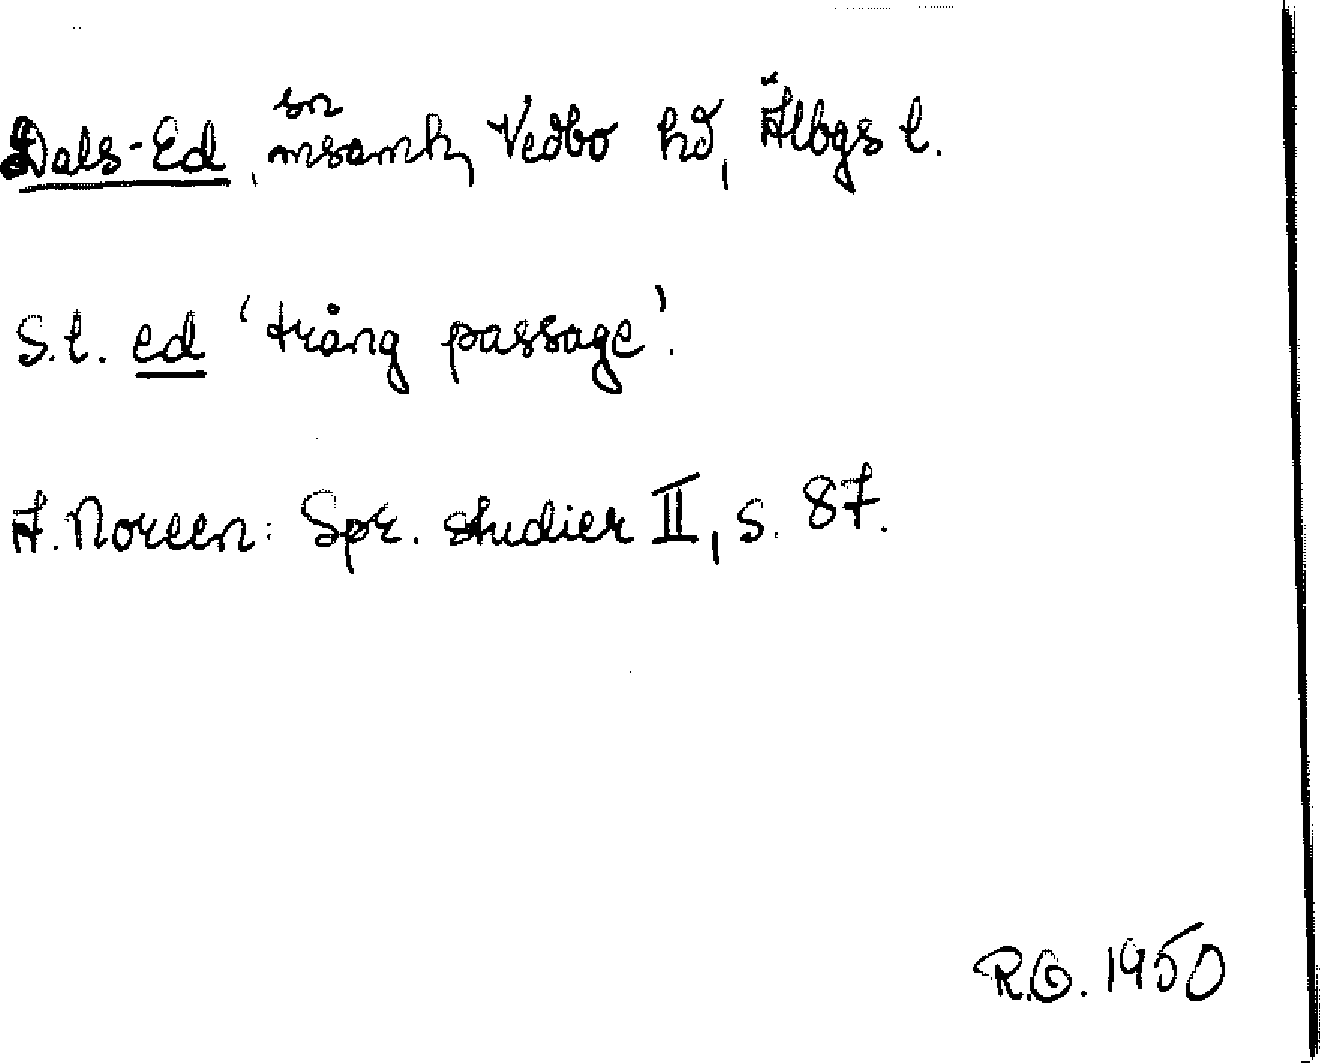 Dals-Ed, sn msamh, Vedbo hd, Älbgs l.
S.l. ed 'trång passage'.
A. Noreen: Spr. studier II, s. 87.
R.O. 1950